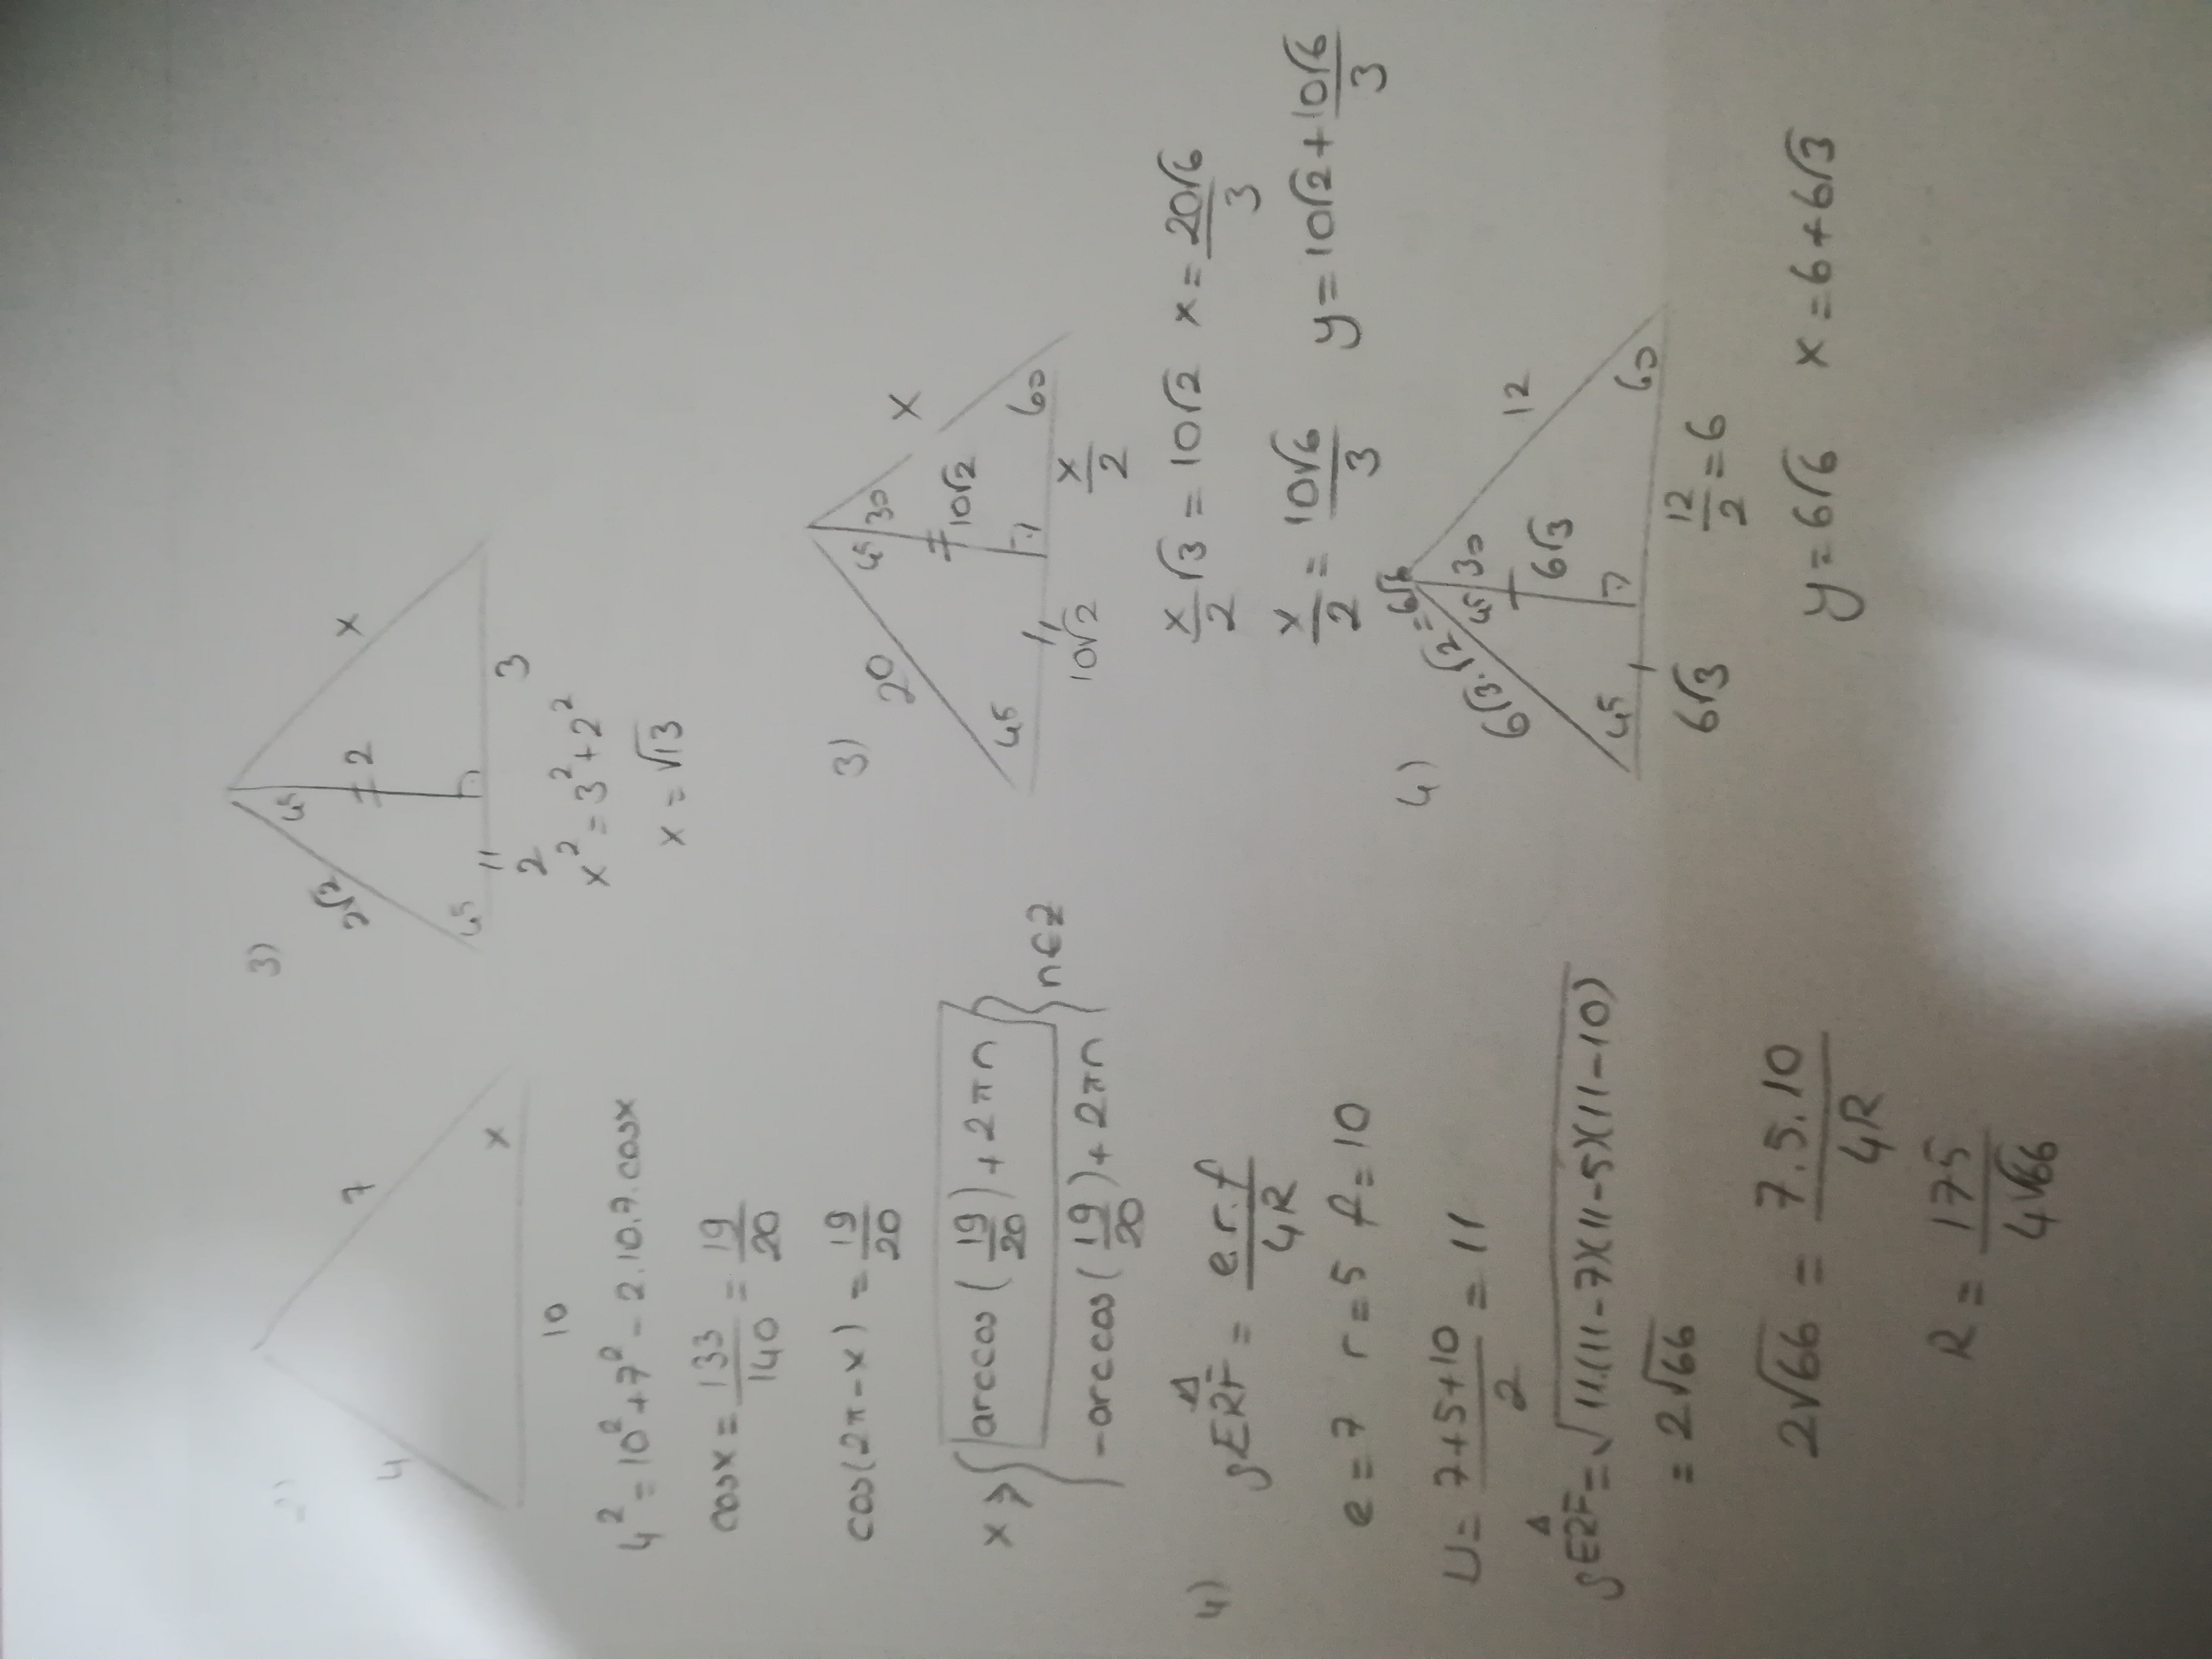 2)
4
7
10
x
4² = 10² + 7² - 2.10.7.cosx
cosx = 133/140 = 19/20
cos(2π-x) = 19/20
x ⇒ { arccos(19/20) + 2πn
-arccos(19/20) + 2πn } n∈Z
4) SERF = e.r.f/4R
e = 7 r = 5 f = 10
U = 7+5+10/2 = 11
SERF = √11.(11-7)(11-5)(11-10)
= 2√66
2√66 = 7.5.10/4R
R = 175/4√66
3)
2√2
45
2
x
45
11
2
3
x² = 3² + 2²
x = √13
3)
20
45
30
x
10√2
45
60
11
10√2
x/2
x/2 √3 = 10√2 x = 20√6/3
x/2 = 10√6/3 y = 10√2 + 10√6/3
4)
6√3.√2 = 6√6
45
30
12
6√3
45
60
6√3
12/2 = 6
y = 6√6 x = 6 + 6√3